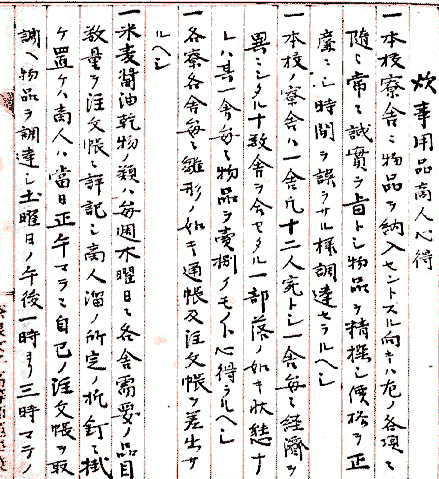 炊事用品商人心得
一本校寮舎ニ物品ヲ納入セントスル向キハ左ノ各項ニ
随ヒ常ニ誠實ヲ旨トシ物品ヲ精撰シ價格ヲ正
廉ニシ時間ヲ誤ラサル様調達セラルヘシ
一本校ノ寮舎ハ一舎凡十二人宛トシ一舎毎ニ経済ヲ
異ニシタル十数舎ヲ合セタル一部落ノ如キ状態ナ
レハ某一舎毎ニ物品ヲ賣捌クモノト心得ラルヘシ
一各寮各舎毎ニ雛形ノ如キ通帳及注文帳ヲ差出サ
ルヘシ
一米麦醤油乾物ノ類ハ毎週木曜日ニ各舎需要ノ品目
数量ヲ注文帳ニ詳記シ商人溜ノ所定ノ折釘ニ掛
ケ置ケハ商人ハ當日正午マテニ自己ノ注文帳ヲ取
調ヘ物品ヲ調達シ土曜日ノ午後一時ヨリ三時マテノ